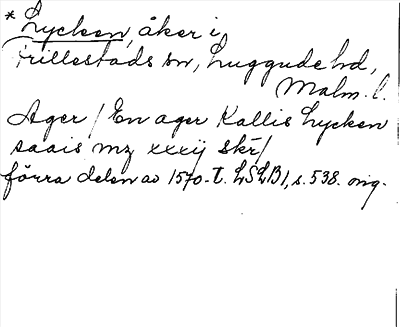 * Lycken, åker i
Frillestads sn, Luggude hd,
Malm. l.
Ager / En ager Kallis Lycken
saais mz xxxij skr/
förra delen av 1570-t. LSLB1, s. 538. orig.